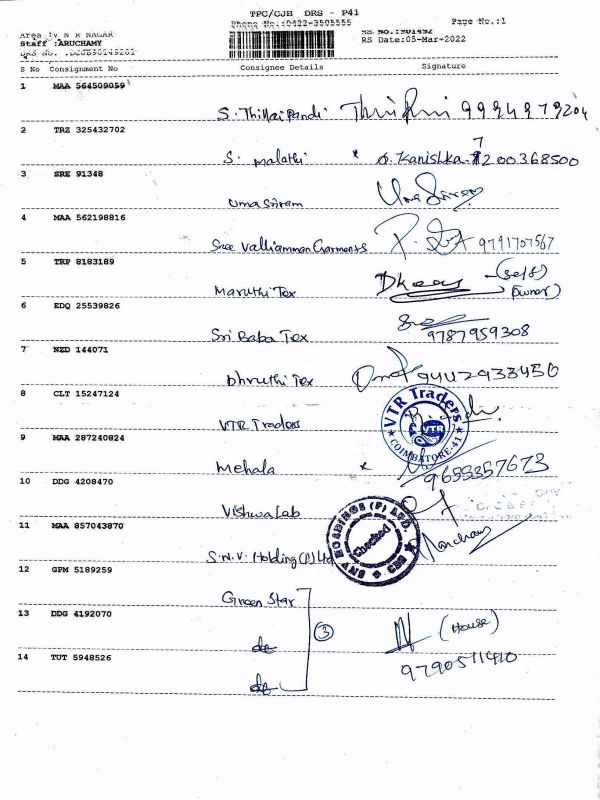 TPC/CJB DRS - P41
Phone No.:0422-3505555 Page No.:1
Area :V N R NAGAR
Staff :ARUCHAMY
RS Date:05-Mar-2022
S No Consignment No Consignee Details Signature
1 MAA 564509059
S. Thillai Pandi 9994979204
2 TRZ 325432702
S. Malathi x Kanishka 7200368500
3 SRE 91348
Uma Sriram Uma Sriram
4 MAA 562198816
Sree Valliamman Garments 9791707567
5 TRP 8183189
Maruthi Tex (self) (owner)
6 EDQ 25539826
Sri Baba Tex 9787959308
7 NZD 144071
Dhruthi Tex 9442933450
8 CLT 15247124
VTR Traders
VTR Traders
VTR
COIMBATORE-41
9 MAA 287240824
Mehala x 9655357673
10 DDG 4208470
Vishwa Lab
11 MAA 857043870
S.N.V. Holding (P) Ltd
SNV HOLDINGS (P) LTD. CBE
Checked
12 GPM 5189259
Green Star
13 DDG 4192070
do 3 (House)
9790511410
14 TUT 5948526
do